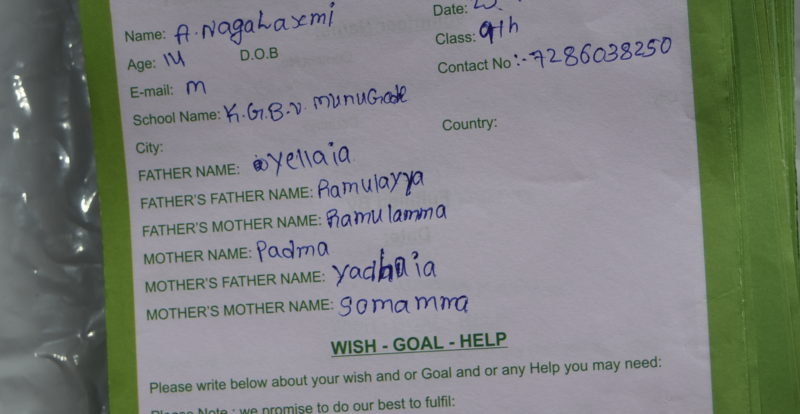 Name: A. NagaLaxmi Date:
Age: 14 D.O.B Class: 9th
E-mail: m Contact No :- 7286038250
School Name: K.G.B.V. munugode
City: Country:
FATHER NAME: yellaia
FATHER'S FATHER NAME: Ramulayya
FATHER'S MOTHER NAME: Ramulamma
MOTHER NAME: Padma
MOTHER'S FATHER NAME: yadhaia
MOTHER'S MOTHER NAME: Somamma
WISH - GOAL - HELP
Please write below about your wish and or Goal and or any Help you may need:
Please Note : we promise to do our best to fulfil: